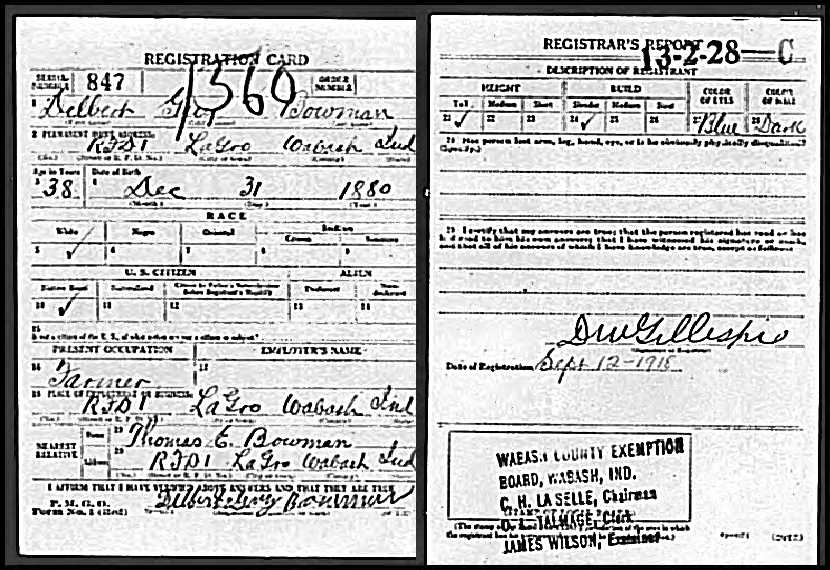 REGISTRATION CARD
SERIAL NUMBER 847
1560
ORDER NUMBER
1 Delbert Bowman
2 PERMANENT HOME ADDRESS:
RFD 1 LaGro Wabash Ind
Age in Years Date of Birth
3 38 4 Dec 31 1880
(Month.) (Day.) (Year.)
RACE
White Negro Oriental Indian
Citizen Noncitizen
5 ✓ 6 7 8 9
U. S. CITIZEN ALIEN
Native Born Naturalized Citizen by Father's Naturalization Before Registrant's Majority Declarant Non-declarant
10 ✓ 11 12 13 14
15
If not a citizen of the U. S., of what nation are you a citizen or subject?
PRESENT OCCUPATION EMPLOYER'S NAME
16 Farmer 17
18 PLACE OF EMPLOYMENT OR BUSINESS:
RFD 1 LaGro Wabash Ind
NEAREST RELATIVE
Name 19 Thomas E. Bowman
Address 20 RFD 1 LaGro Wabash Ind
I AFFIRM THAT I HAVE VERIFIED ABOVE ANSWERS AND THAT THEY ARE TRUE
P. M. G. O.
Form No. 1 (Red)
Delbert Bowman
REGISTRAR'S REPORT
13-2-28-C
DESCRIPTION OF REGISTRANT
HEIGHT BUILD COLOR OF EYES COLOR OF HAIR
Tall Medium Short Slender Medium Stout
21 ✓ 22 23 24 ✓ 25 26 27 Blue 28 Dark
29 Has person lost arm, leg, hand, eye, or is he obviously physically disqualified?
(Specify.)
30 I certify that my answers are true; that the person registered has read or has
had read to him his own answers; that I have witnessed his signature or mark,
and that all of his answers of which I have knowledge are true, except as follows:
D W Gillespie
Date of Registration Sept 12-1918
WABASH COUNTY EXEMPTION
BOARD, WABASH, IND.
C. H. LA SELLE, Chairman
TALMAGE, Clerk
JAMES WILSON, Examiner
(OVER)